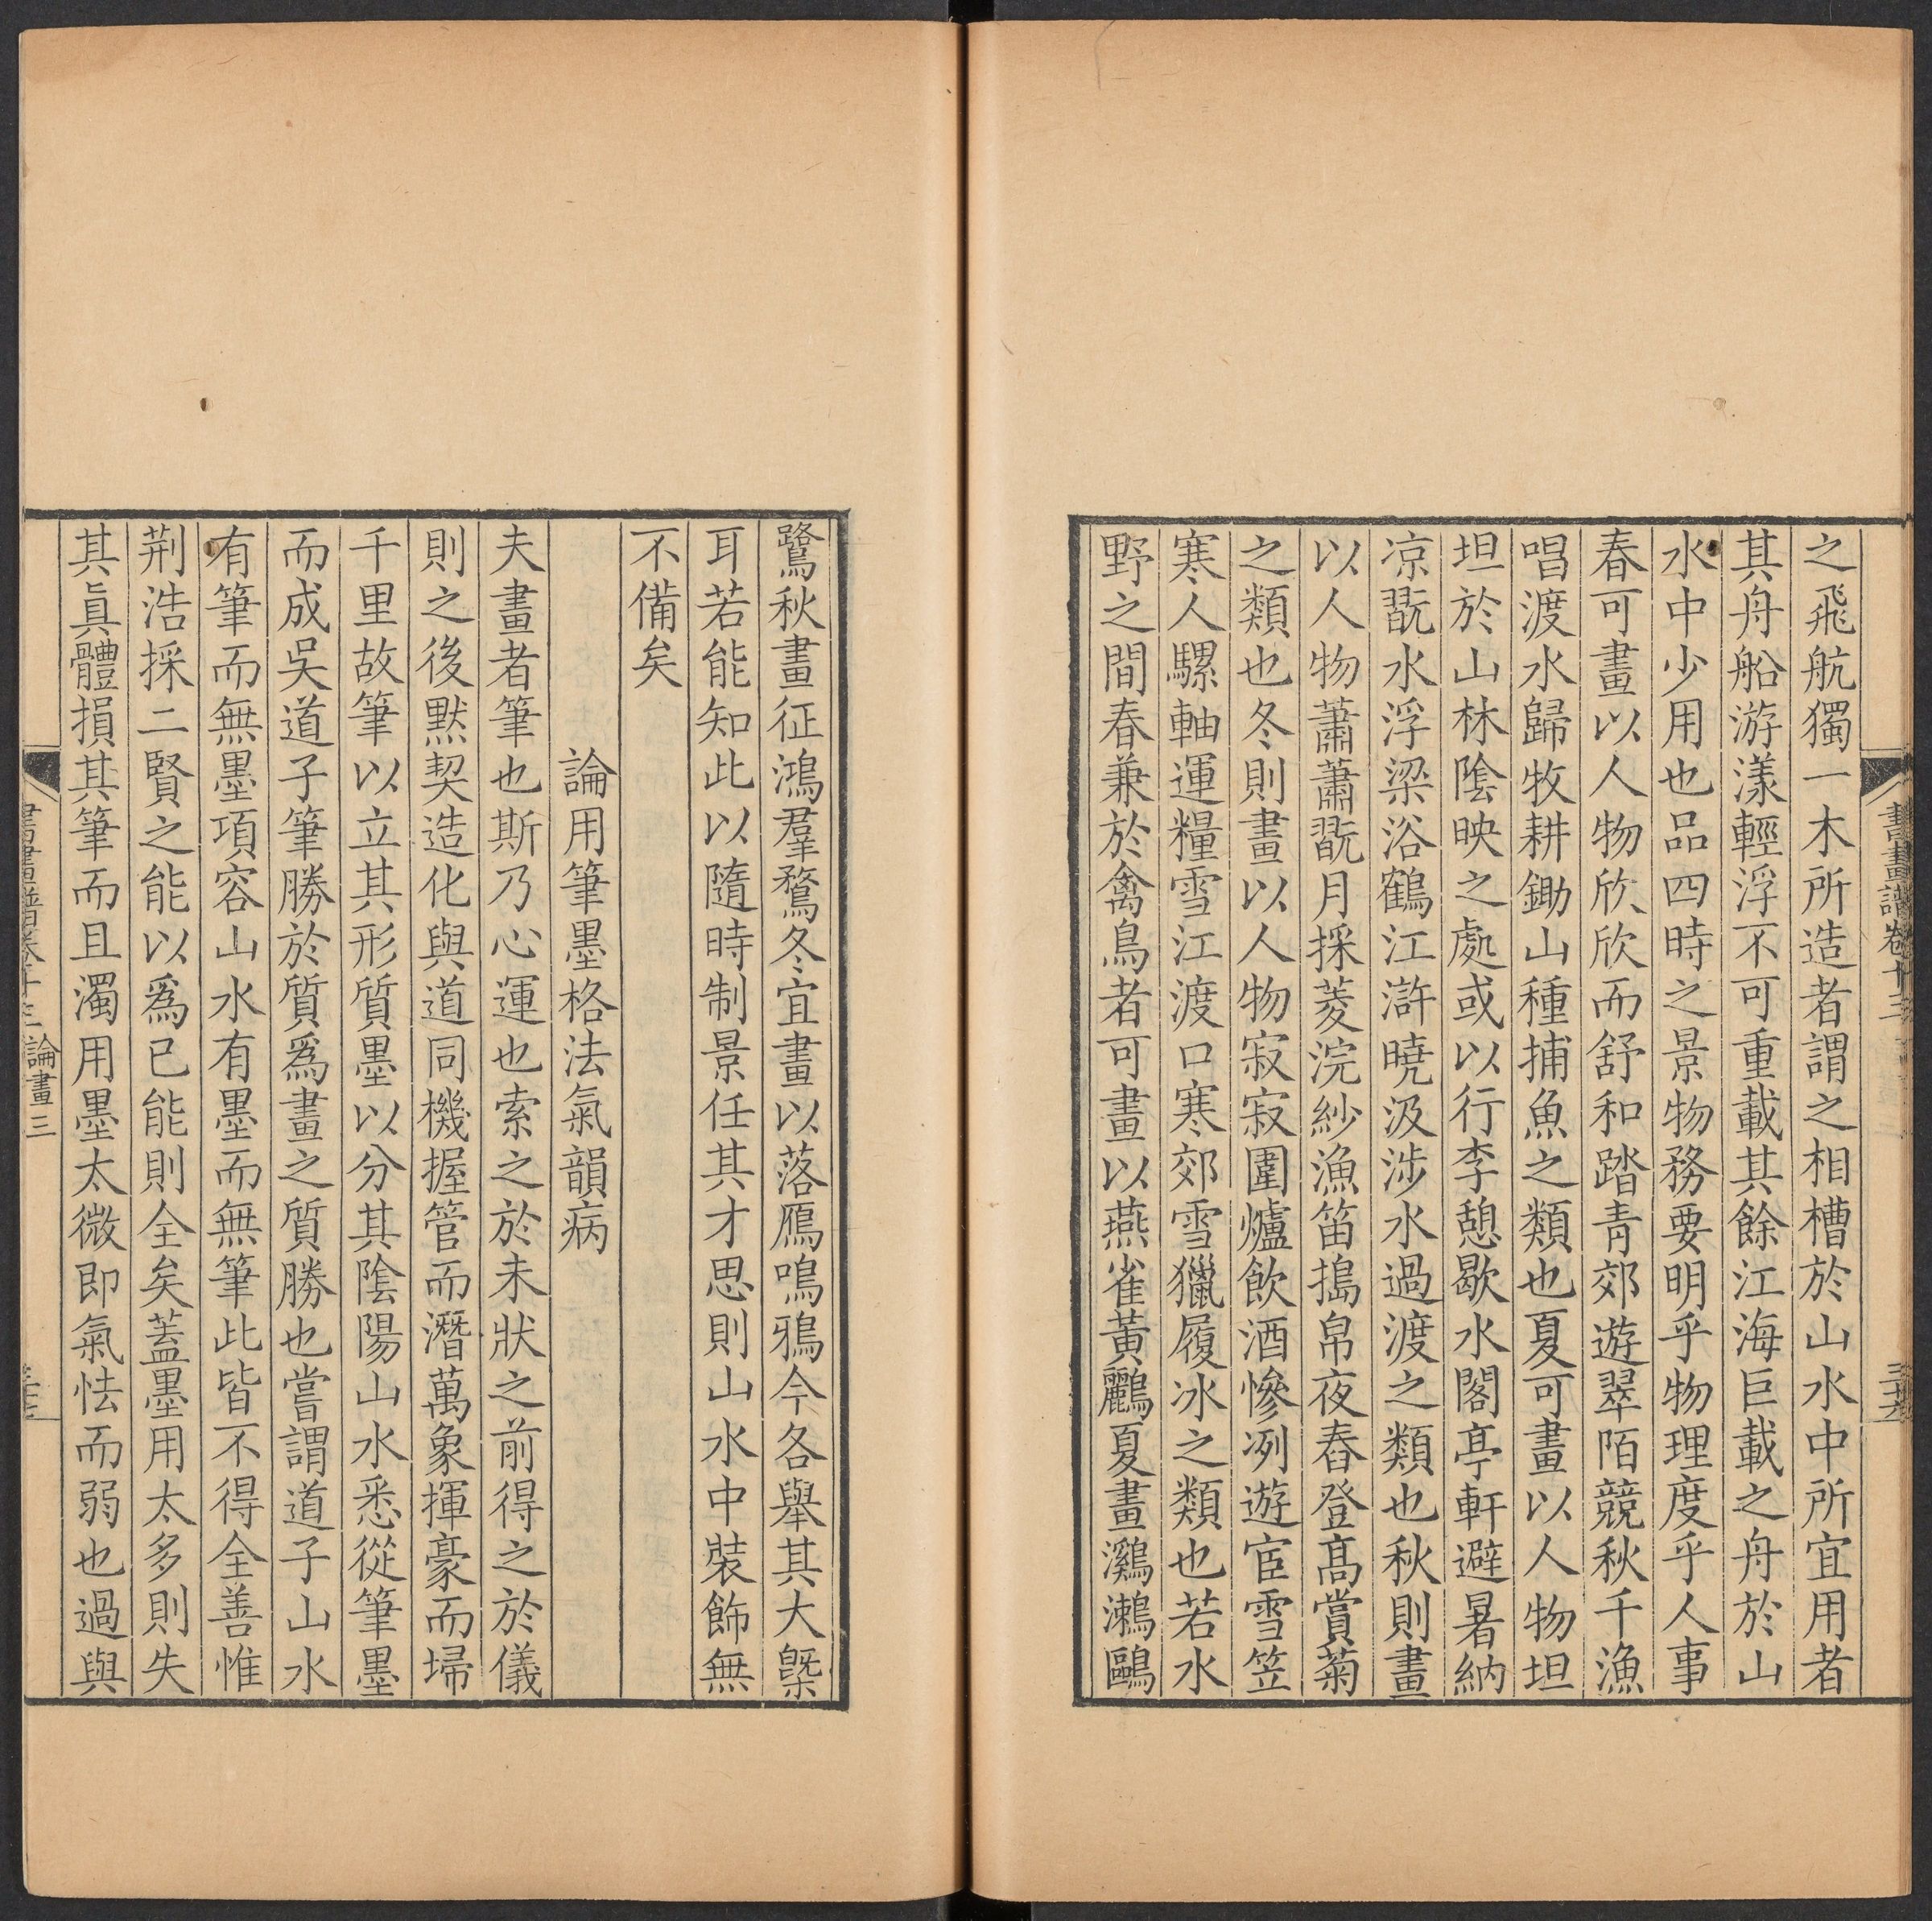 書畫譜卷十三
之飛航獨一木所造者謂之相槽於山水中所宜用者
其舟船游漾輕浮不可重載其餘江海巨載之舟於山
水中少用也品四時之景物務要明乎物理度乎人事
春可畫以人物欣欣而舒和踏青郊遊翠陌競秋千漁
唱渡水歸牧耕鋤山種捕魚之類也夏可畫以人物坦
坦於山林陰映之處或以行李憩歇水閣亭軒避暑納
凉翫水浮梁浴鶴江滸曉汲涉水過渡之類也秋則畫
以人物蕭蕭翫月採菱浣紗漁笛搗帛夜舂登高賞菊
之類也冬則畫以人物寂寂圍爐飲酒慘冽遊宦雪笠
寒人騾軸運糧雪江渡口寒郊雪獵履冰之類也若水
野之間春兼於禽鳥者可畫以燕雀黃鸝夏畫鸂鷘鷗
鷺秋畫征鴻羣鶩冬宜畫以落鴈鳴鴉今各舉其大槩
耳若能知此以隨時制景任其才思則山水中裝飾無
不備矣
論用筆墨格法氣韻病
夫畫者筆也斯乃心運也索之於未狀之前得之於儀
則之後默契造化與道同機握管而潛萬象揮豪而埽
千里故筆以立其形質墨以分其陰陽山水悉從筆墨
而成吳道子筆勝於質爲畫之質勝也嘗謂道子山水
有筆而無墨項容山水有墨而無筆此皆不得全善惟
荆浩採二賢之能以爲己能則全矣蓋墨用太多則失
其眞體損其筆而且濁用墨太微即氣怯而弱也過與
書畫譜卷十三 論畫三